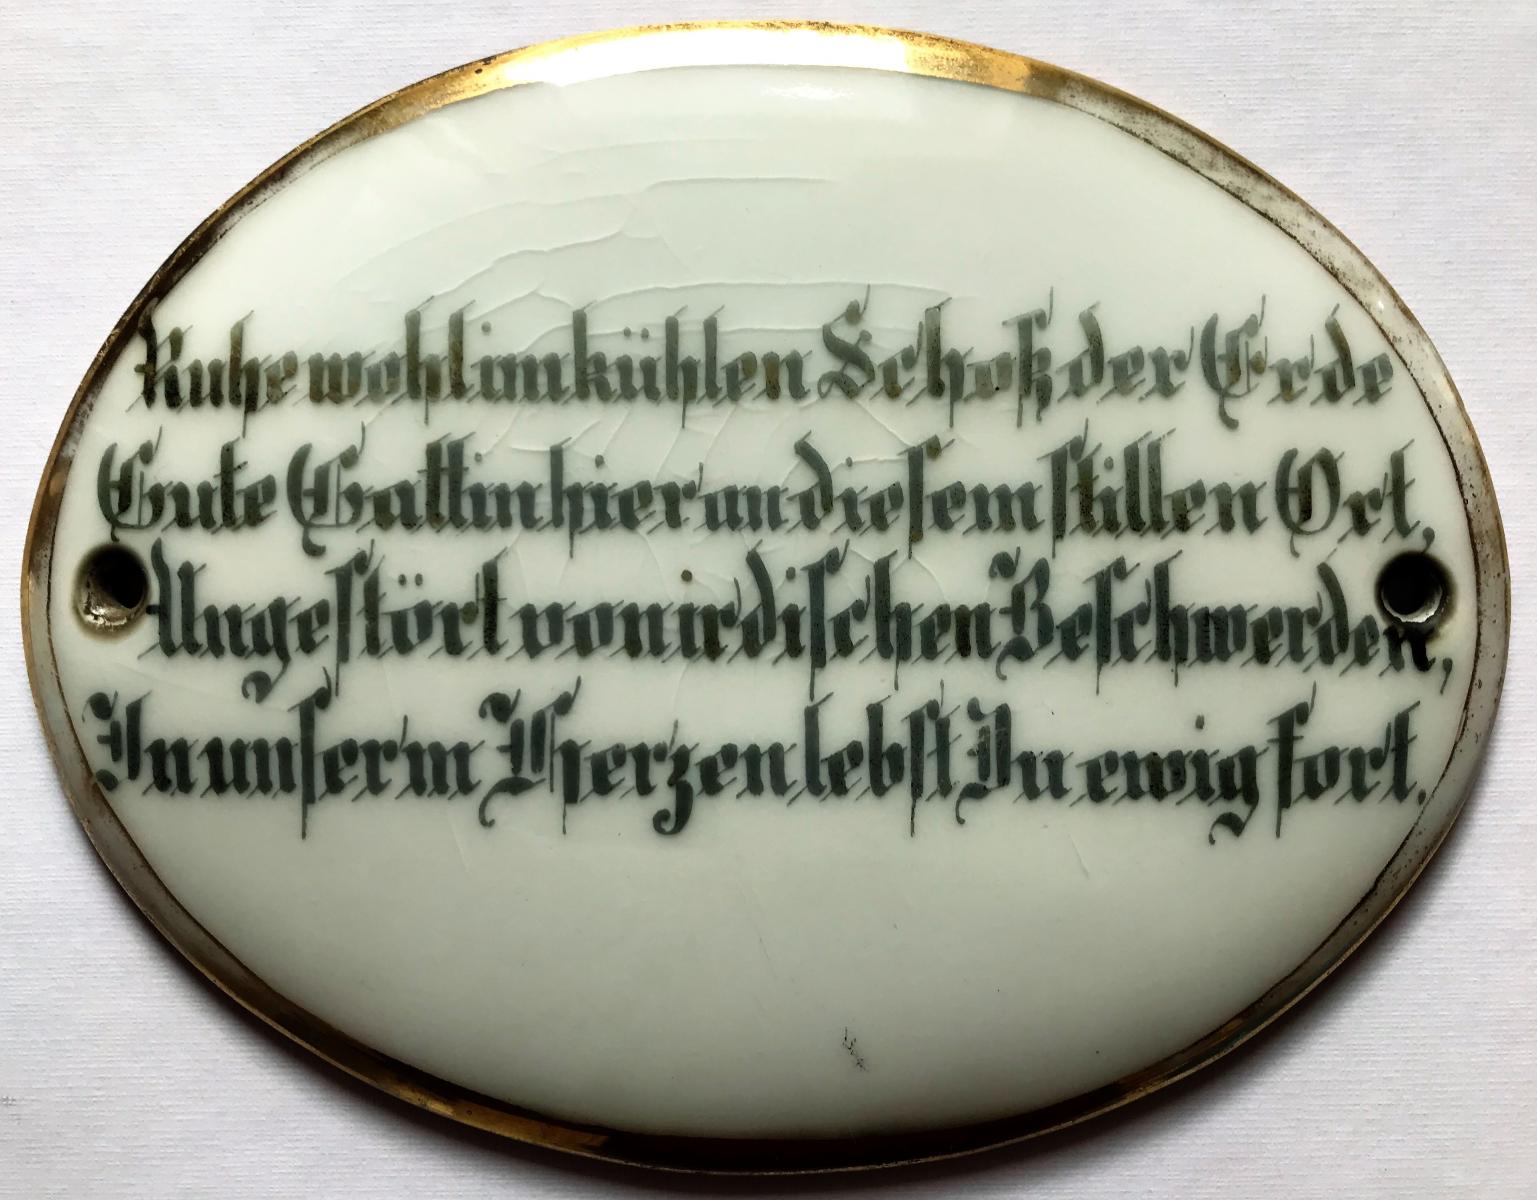 Ruhe wohl im kühlen Schoß der Erde
Gute Gattin hier an diesem stillen Ort,
Ungestört von irdischen Beschwerden,
In unser'm Herzen lebst Du ewig fort.